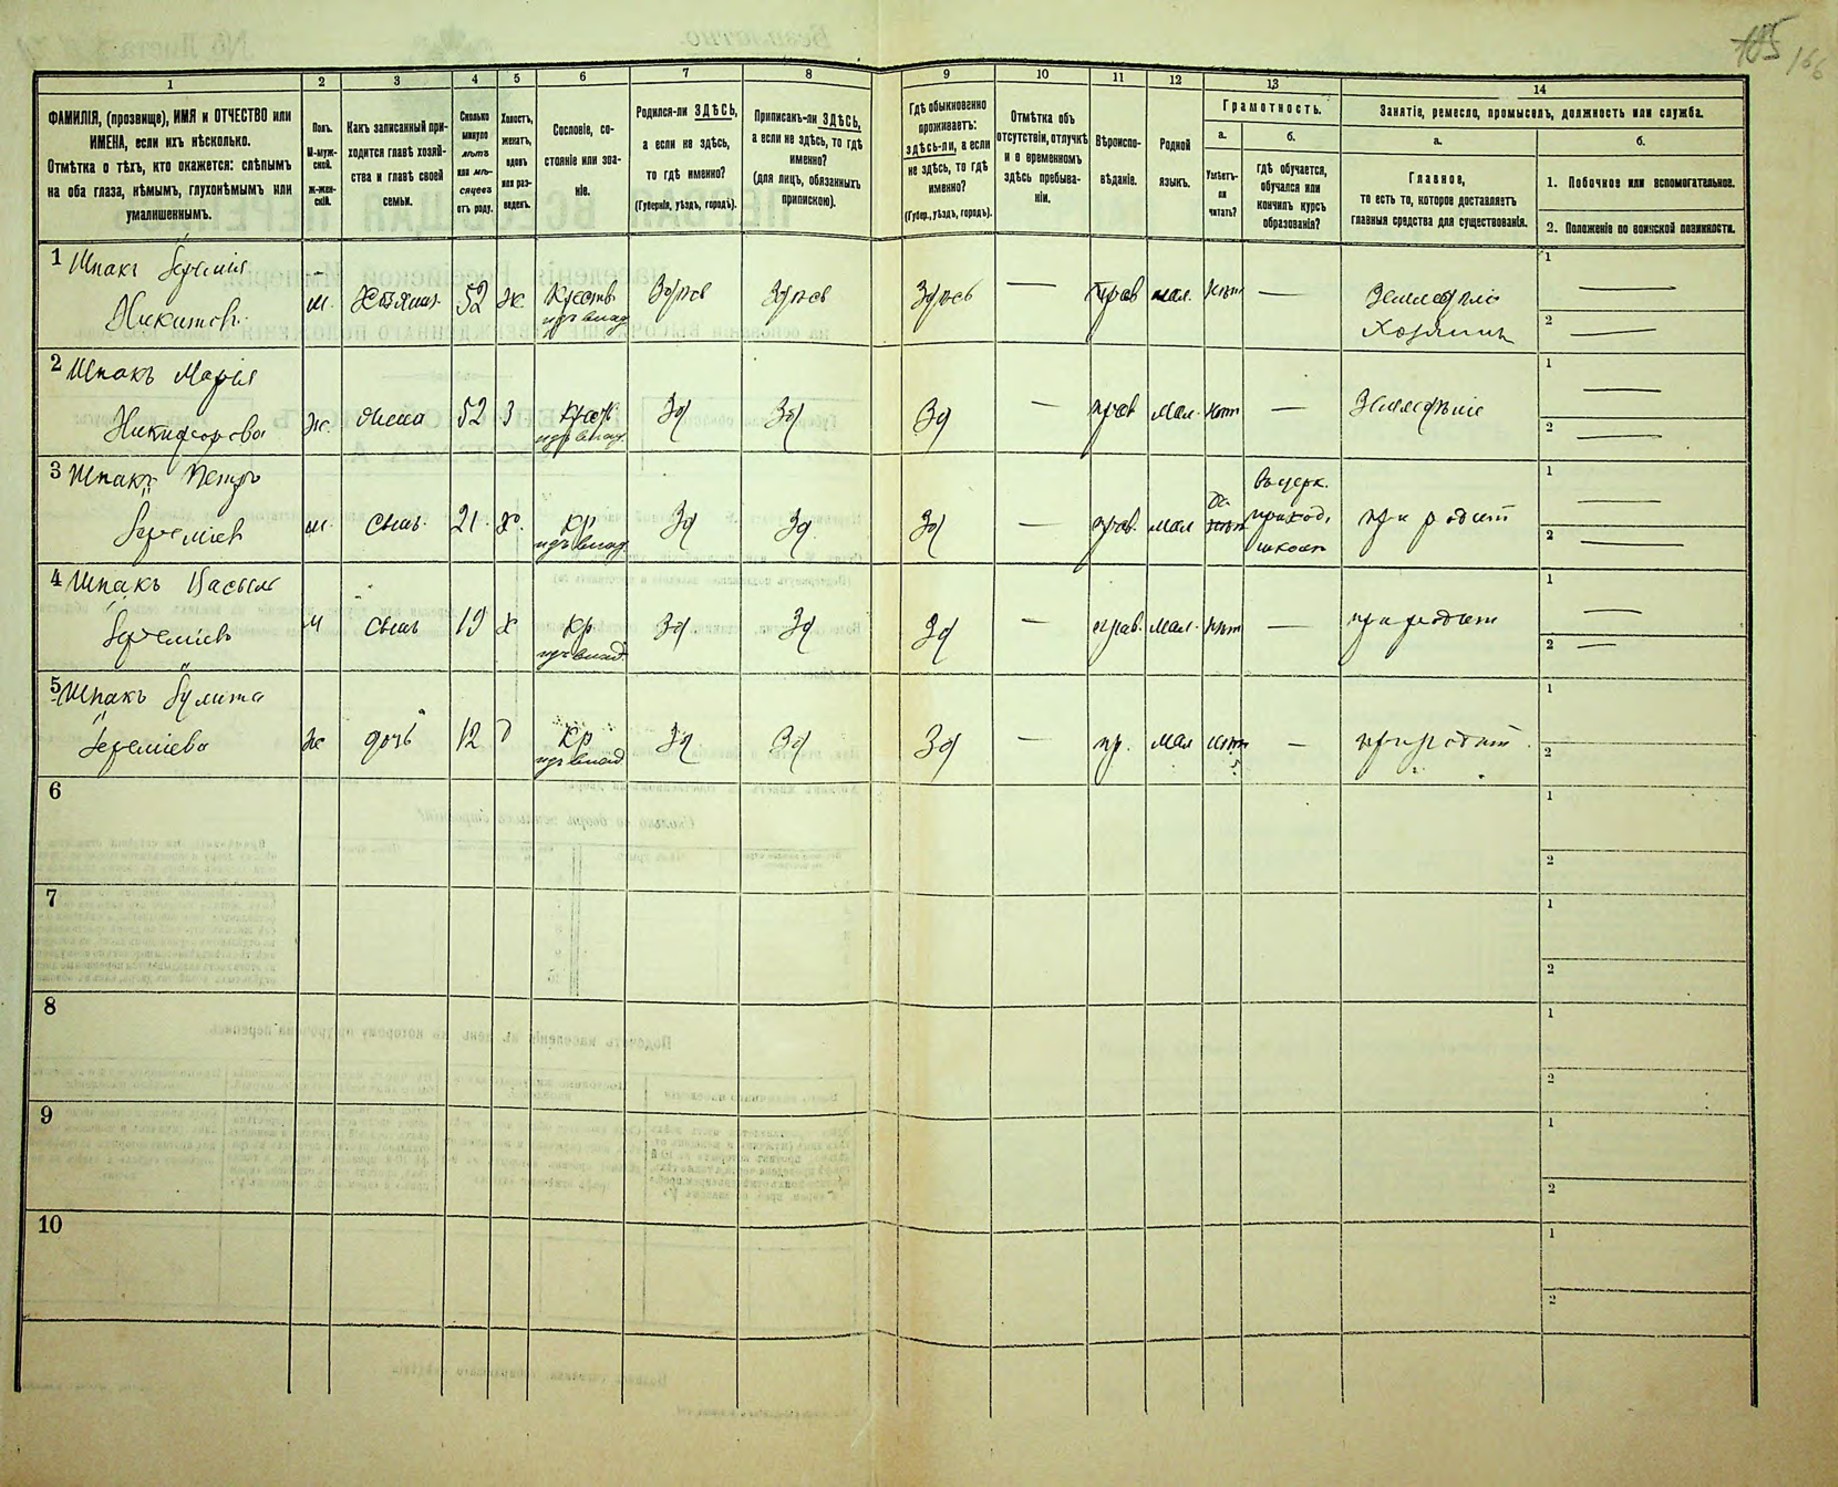 105 166
1 2 3 4 5 6 7 8 9 10 11 12 13 14
ФАМИЛІЯ, (прозвище), ИМЯ и ОТЧЕСТВО или
ИМЕНА, если ихъ нѣсколько.
Отмѣтка о тѣхъ, кто окажется: слѣпымъ
на оба глаза, нѣмымъ, глухонѣмымъ или
умалишеннымъ.
Полъ.
М-муж-
ской.
Ж-жен-
скій.
Какъ записанный при-
ходится главѣ хозяй-
ства и главѣ своей
семьи.
Сколько
минуло
лѣтъ
или мѣ-
сяцевъ
отъ роду.
Холостъ,
женатъ,
вдовъ
или раз-
веденъ.
Сословіе, со-
стояніе или зва-
ніе.
Родился-ли ЗДѢСЬ,
а если не здѣсь,
то гдѣ именно?
(Губернія, уѣздъ, городъ).
Приписанъ-ли ЗДѢСЬ,
а если не здѣсь, то гдѣ
именно?
(для лицъ, обязанныхъ
припискою).
Гдѣ обыкновенно
проживаетъ:
здѣсь-ли, а если
не здѣсь, то гдѣ
именно?
(Губер., уѣздъ, городъ).
Отмѣтка объ
отсутствіи, отлучкѣ
и о временномъ
здѣсь пребыва-
ніи.
Вѣроиспо-
вѣданіе.
Родной
языкъ.
Грамотность.
а.
Умѣетъ-
ли
читать?
б.
Гдѣ обучается,
обучался или
кончилъ курсъ
образованія?
Занятіе, ремесло, промыселъ, должность или служба.
а.
Главное,
то есть то, которое доставляетъ
главныя средства для существованія.
б.
1. Побочное или вспомогательное.
2. Положеніе по воинской повинности.
1 Шпакъ Іеремія
Никитовъ м. Хозяинъ 52 ж Крестъ Здѣсь Здѣсь Здѣсь — прав мал. нѣтъ — Земледѣліе
Хозяинъ
1 —
2 —
2 Шпакъ Марія
Никифорова ж. жена 52 З Крест Зд Зд Зд — прав мал. нѣт — Земледѣліе
1 —
2 —
3 Шпакъ Петръ
Іереміев м. сынъ. 21. х. Кр Зд Зд Зд — прав. мал Да нѣтъ Въ церк.
приход.
школѣ при родит
1 —
2 —
4 Шпакъ Василь
Іереміевъ м сынъ 19 х Кр Зд. Зд Зд — прав. мал. нѣт — при родит
1 —
2 —
5 Шпакъ Іулита
Іереміева ж дочь 12 д Кр Зд Зд Зд — пр. мал нѣт — при родит.
1
2
6
1
2
7
1
2
8
1
2
9
1
2
10
1
2